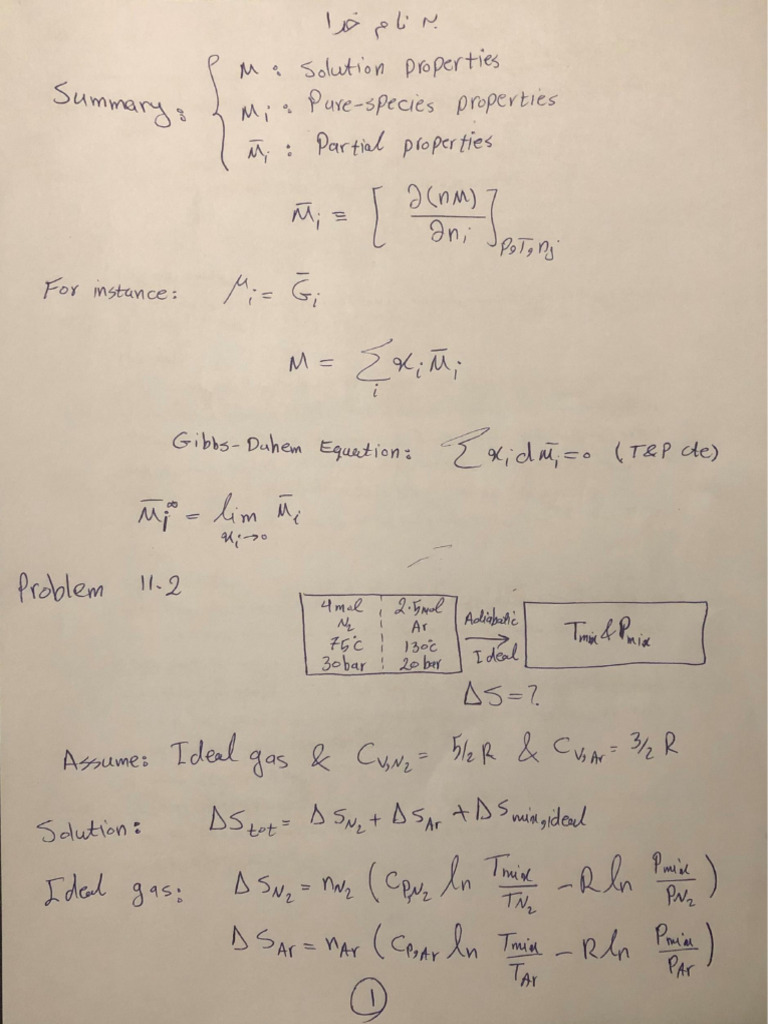 به نام خدا
Summary: { M : Solution properties
Mi : Pure-species properties
M̄i : Partial properties
M̄i ≡ [∂(nM)/∂ni]P,T,nj
For instance: μi = Ḡi
M = Σi xi M̄i
Gibbs-Duhem Equation: Σ xi dm̄i = 0 (T&P cte)
M̄i^∞ = lim xi→0 M̄i
Problem 11.2
4 mol | 2.5 mol
N2 | Ar
75°C | 130°C
30 bar | 20 bar
Adiabatic
→
Ideal
Tmix & Pmix
ΔS = ?
Assume: Ideal gas & Cv,N2 = 5/2 R & Cv,Ar = 3/2 R
Solution: ΔStot = ΔSN2 + ΔSAr + ΔSmix,ideal
Ideal gas: ΔSN2 = nN2 (CP,N2 ln Tmix/TN2 − R ln Pmix/PN2)
ΔSAr = nAr (CP,Ar ln Tmix/TAr − R ln Pmix/PAr)
1